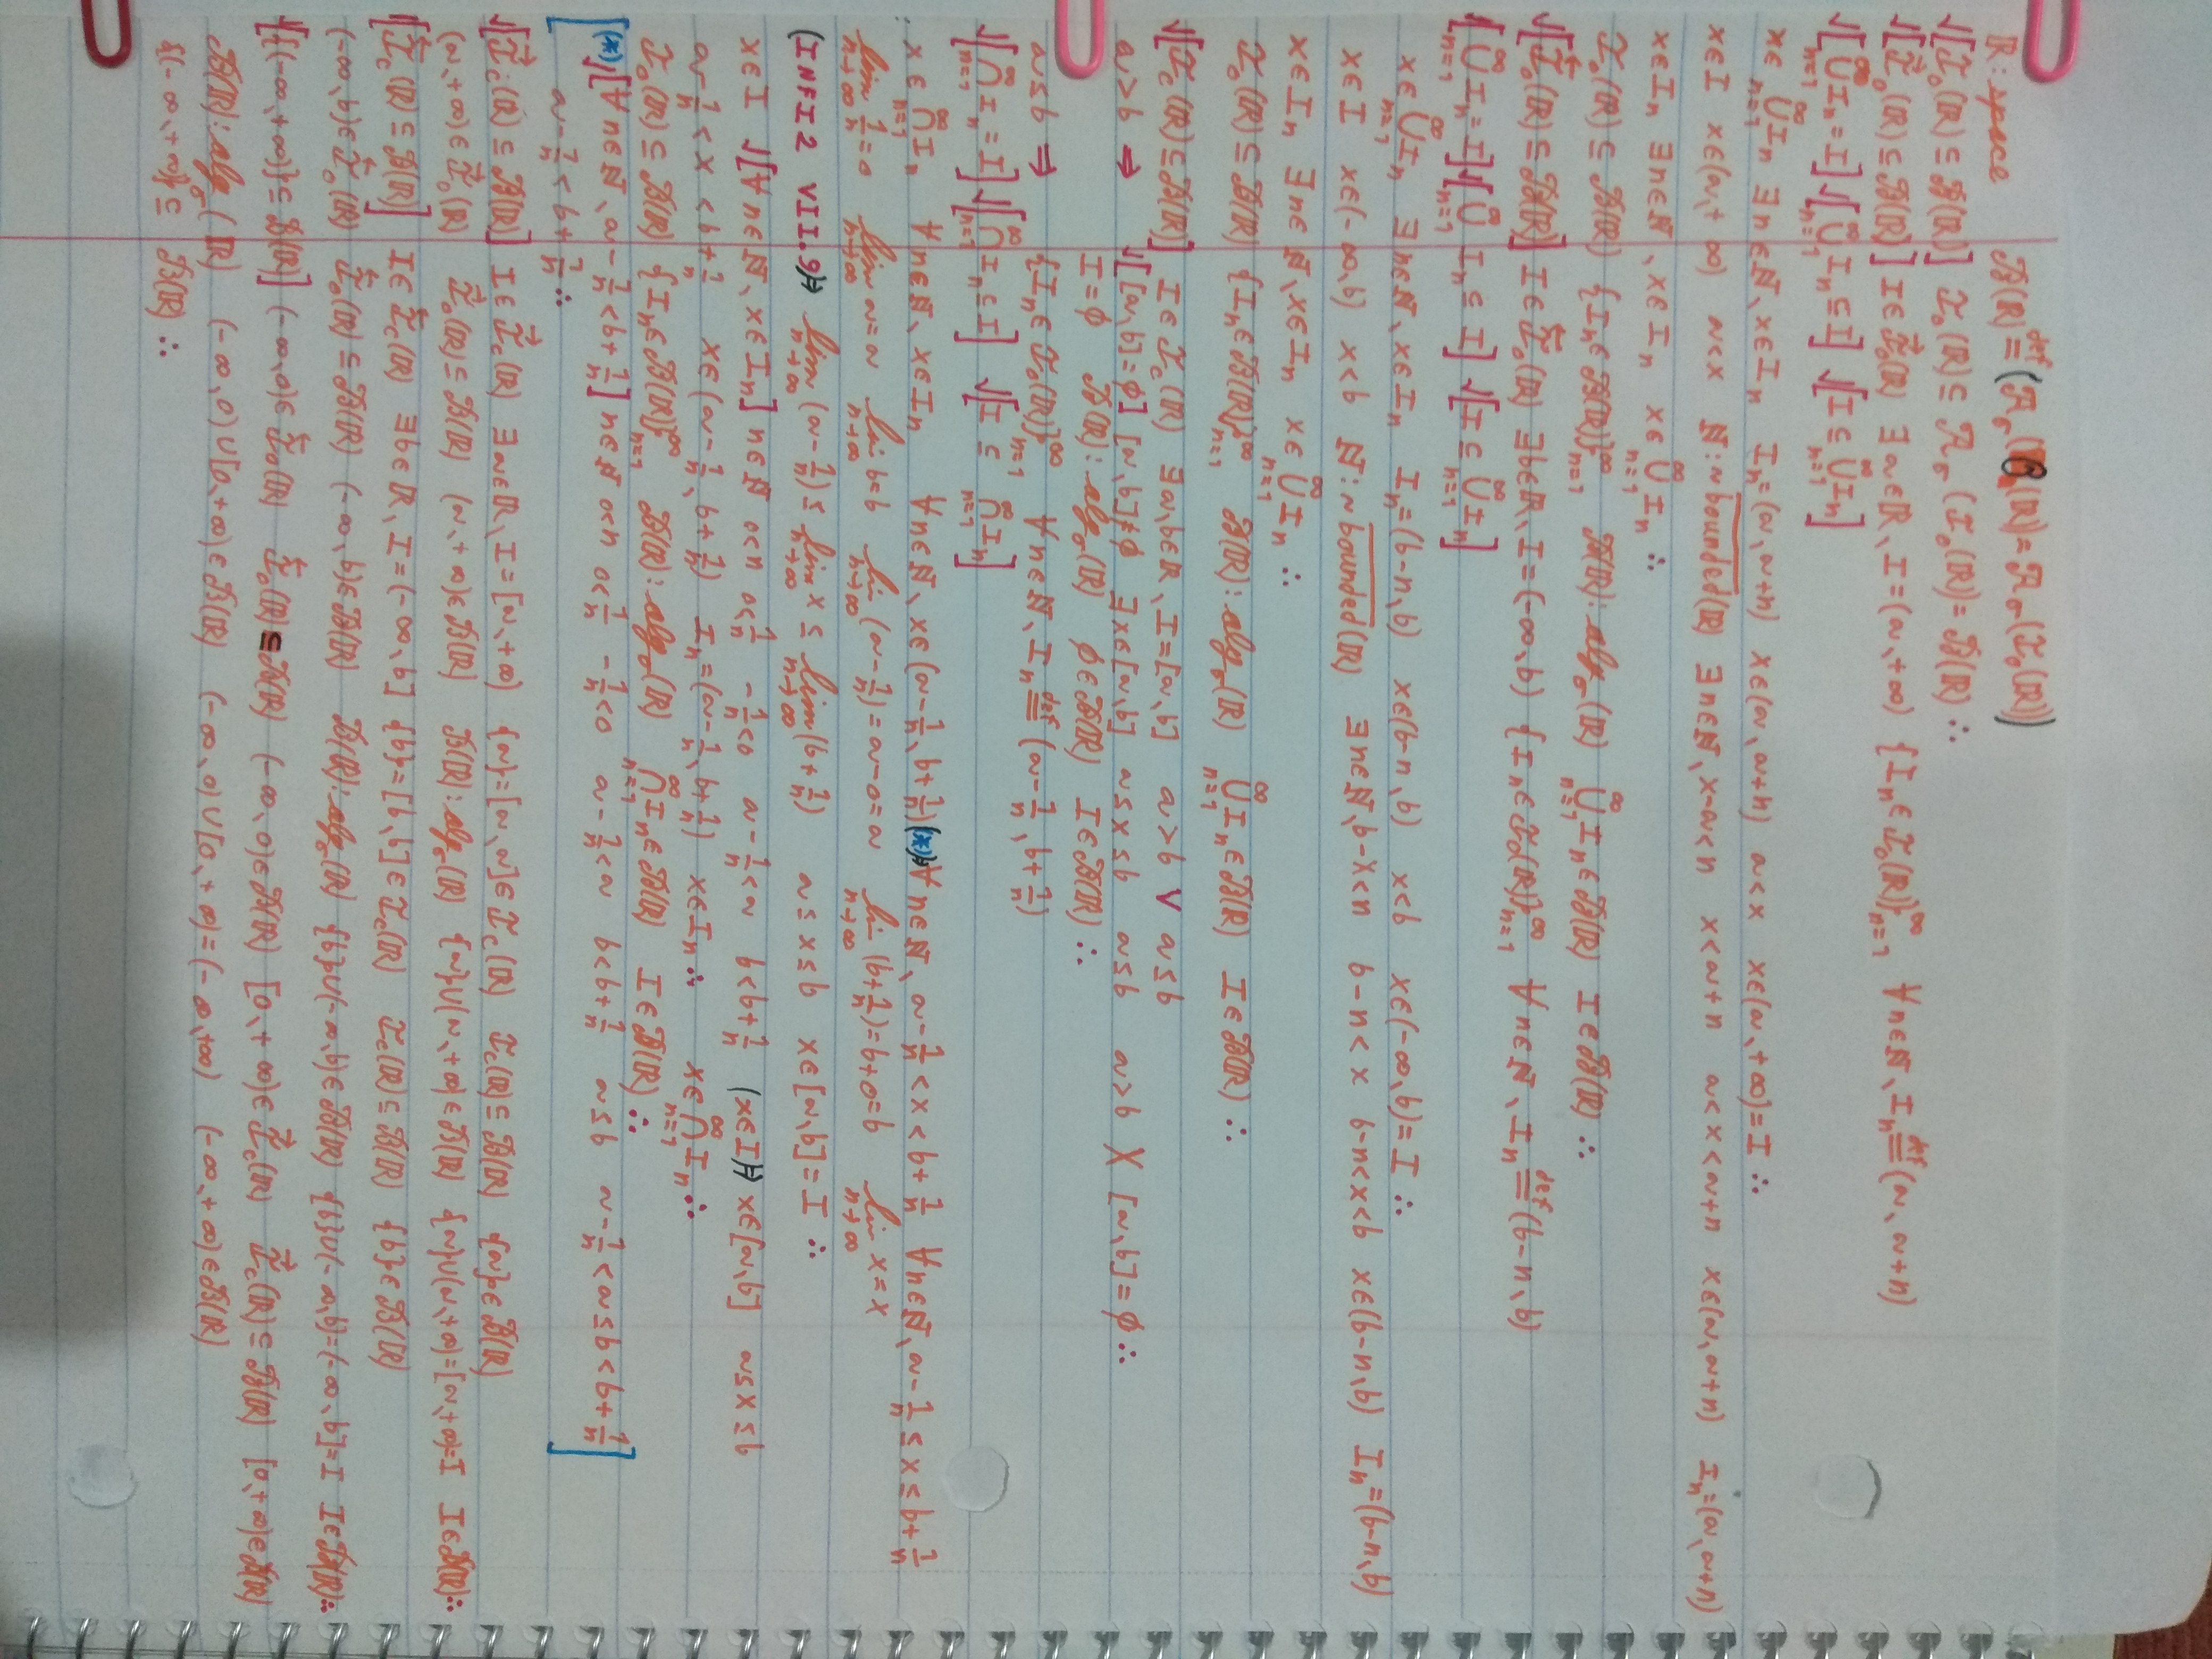 ℝ: space  𝓑(ℝ) ≝ (𝒜_σ(𝓑_t(ℝ)) = 𝒜_σ(ℐ_o(ℝ)))
√[ℐ_o(ℝ) ⊆ 𝓑(ℝ)] ℐ_o(ℝ) ⊆ 𝒜_σ(ℐ_o(ℝ)) = 𝓑(ℝ) ∴
√[ℐ⃗_o(ℝ) ⊆ 𝓑(ℝ)] I ∈ ℐ⃗_o(ℝ) ∃a∈ℝ, I = (a, +∞) {I_n ∈ ℐ_o(ℝ)}_{n=1}^∞ ∀n∈ℕ, I_n ≝ (a, a+n)
√[⋃_{n=1}^∞ I_n = I] √[⋃_{n=1}^∞ I_n ⊆ I] √[I ⊆ ⋃_{n=1}^∞ I_n]
x ∈ ⋃_{n=1}^∞ I_n ∃n∈ℕ, x∈I_n I_n = (a, a+n) x∈(a, a+n) a<x x∈(a, +∞) = I ∴
x∈I x∈(a, +∞) a<x ℕ: ~bounded(ℝ) ∃n∈ℕ, x-a<n x<a+n a<x<a+n x∈(a, a+n) I_n = (a, a+n)
x∈I_n ∃n∈ℕ, x∈I_n x ∈ ⋃_{n=1}^∞ I_n ∴
ℐ_o(ℝ) ⊆ 𝓑(ℝ) {I_n ∈ 𝓑(ℝ)}_{n=1}^∞ 𝓑(ℝ): alg_σ(ℝ) ⋃_{n=1}^∞ I_n ∈ 𝓑(ℝ) I ∈ 𝓑(ℝ) ∴
√[ℐ⃖_o(ℝ) ⊆ 𝓑(ℝ)] I ∈ ℐ⃖_o(ℝ) ∃b∈ℝ, I = (-∞, b) {I_n ∈ ℐ_o(ℝ)}_{n=1}^∞ ∀n∈ℕ, I_n ≝ (b-n, b)
√[⋃_{n=1}^∞ I_n = I] √[⋃_{n=1}^∞ I_n ⊆ I] √[I ⊆ ⋃_{n=1}^∞ I_n]
x ∈ ⋃_{n=1}^∞ I_n ∃n∈ℕ, x∈I_n I_n = (b-n, b) x∈(b-n, b) x<b x∈(-∞, b) = I ∴
x∈I x∈(-∞, b) x<b ℕ: ~bounded(ℝ) ∃n∈ℕ, b-x<n b-n<x b-n<x<b x∈(b-n, b) I_n = (b-n, b)
x∈I_n ∃n∈ℕ, x∈I_n x ∈ ⋃_{n=1}^∞ I_n ∴
ℐ_o(ℝ) ⊆ 𝓑(ℝ) {I_n ∈ 𝓑(ℝ)}_{n=1}^∞ 𝓑(ℝ): alg_σ(ℝ) ⋃_{n=1}^∞ I_n ∈ 𝓑(ℝ) I ∈ 𝓑(ℝ) ∴
√[ℐ_c(ℝ) ⊆ 𝓑(ℝ)] I ∈ ℐ_c(ℝ) ∃a, b∈ℝ, I = [a, b] a>b ∨ a≤b
a>b ⇒ √[[a, b] = ϕ] [a, b] ≠ ϕ ∃x∈[a, b] a≤x≤b a≤b a>b X [a, b] = ϕ ∴
I = ϕ 𝓑(ℝ): alg_σ(ℝ) ϕ ∈ 𝓑(ℝ) I ∈ 𝓑(ℝ) ∴
a≤b ⇒ {I_n ∈ ℐ_o(ℝ)}_{n=1}^∞ ∀n∈ℕ, I_n ≝ (a-1/n, b+1/n)
√[⋂_{n=1}^∞ I_n = I] √[⋂_{n=1}^∞ I_n ⊆ I] √[I ⊆ ⋂_{n=1}^∞ I_n]
x ∈ ⋂_{n=1}^∞ I_n ∀n∈ℕ, x∈I_n ∀n∈ℕ, x∈(a-1/n, b+1/n) (*)⇒ ∀n∈ℕ, a-1/n<x<b+1/n ∀n∈ℕ, a-1/n≤x≤b+1/n
lim_{n→∞} 1/n = 0 lim_{n→∞} a = a lim_{n→∞} b = b lim_{n→∞} (a-1/n) = a-0 = a lim_{n→∞} (b+1/n) = b+0 = b lim_{n→∞} x = x
(INFI2 VII.9)⇒ lim_{n→∞} (a-1/n) ≤ lim_{n→∞} x ≤ lim_{n→∞} (b+1/n) a≤x≤b x∈[a, b] = I ∴
x∈I √[∀n∈ℕ, x∈I_n] n∈ℕ 0<n 0<1/n -1/n<0 a-1/n<a b<b+1/n (x∈I)⇒ x∈[a, b] a≤x≤b
a-1/n<x<b+1/n x∈(a-1/n, b+1/n) I_n = (a-1/n, b+1/n) x∈I_n ∴ x ∈ ⋂_{n=1}^∞ I_n ∴
ℐ_o(ℝ) ⊆ 𝓑(ℝ) {I_n ∈ 𝓑(ℝ)}_{n=1}^∞ 𝓑(ℝ): alg_σ(ℝ) ⋂_{n=1}^∞ I_n ∈ 𝓑(ℝ) I ∈ 𝓑(ℝ) ∴
[(*) √[∀n∈ℕ, a-1/n<b+1/n] n∈ℕ 0<n 0<1/n -1/n<0 a-1/n<a b<b+1/n a≤b a-1/n<a≤b<b+1/n
a-1/n<b+1/n ∴ ]
√[ℐ⃗_c(ℝ) ⊆ 𝓑(ℝ)] I ∈ ℐ⃗_c(ℝ) ∃a∈ℝ, I = [a, +∞) {a} = [a, a] ∈ ℐ_c(ℝ) ℐ_c(ℝ) ⊆ 𝓑(ℝ) {a} ∈ 𝓑(ℝ)
(a, +∞) ∈ ℐ⃗_o(ℝ) ℐ⃗_o(ℝ) ⊆ 𝓑(ℝ) (a, +∞) ∈ 𝓑(ℝ) 𝓑(ℝ): alg_σ(ℝ) {a}∪(a, +∞) ∈ 𝓑(ℝ) {a}∪(a, +∞) = [a, +∞) = I I ∈ 𝓑(ℝ) ∴
√[ℐ⃖_c(ℝ) ⊆ 𝓑(ℝ)] I ∈ ℐ⃖_c(ℝ) ∃b∈ℝ, I = (-∞, b] {b} = [b, b] ∈ ℐ_c(ℝ) ℐ_c(ℝ) ⊆ 𝓑(ℝ) {b} ∈ 𝓑(ℝ)
(-∞, b) ∈ ℐ⃖_o(ℝ) ℐ⃖_o(ℝ) ⊆ 𝓑(ℝ) (-∞, b) ∈ 𝓑(ℝ) 𝓑(ℝ): alg_σ(ℝ) {b}∪(-∞, b) ∈ 𝓑(ℝ) {b}∪(-∞, b) = (-∞, b] = I I ∈ 𝓑(ℝ) ∴
√[{(-∞, +∞)} ⊆ 𝓑(ℝ)] (-∞, 0) ∈ ℐ⃖_o(ℝ) ℐ⃖_o(ℝ) ⊆ 𝓑(ℝ) (-∞, 0) ∈ 𝓑(ℝ) [0, +∞) ∈ ℐ⃗_c(ℝ) ℐ⃗_c(ℝ) ⊆ 𝓑(ℝ) [0, +∞) ∈ 𝓑(ℝ)
𝓑(ℝ): alg_σ(ℝ) (-∞, 0)∪[0, +∞) ∈ 𝓑(ℝ) (-∞, 0)∪[0, +∞) = (-∞, +∞) (-∞, +∞) ∈ 𝓑(ℝ)
{(-∞, +∞)} ⊆ 𝓑(ℝ) ∴